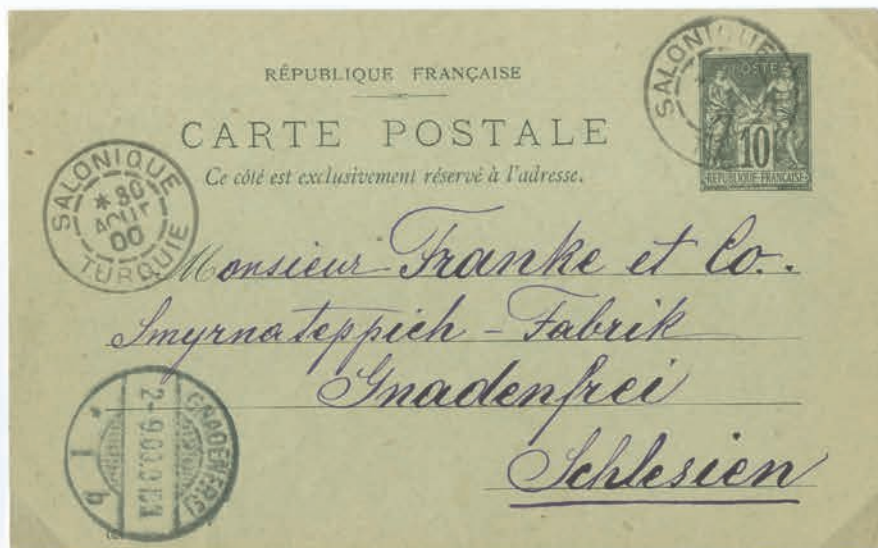 RÉPUBLIQUE FRANÇAISE
CARTE POSTALE
Ce côté est exclusivement réservé à l'adresse.
SALONIQUE
POSTE
10
REPUBLIQUE-FRANÇAISE
SALONIQUE
* 30
AOUT
00
TURQUIE
Monsieur Franke et Co.
Smyrnateppich - Fabrik
Gnadenfrei
Schlesien
GNADENFREI
2-9.00.
*
1
b